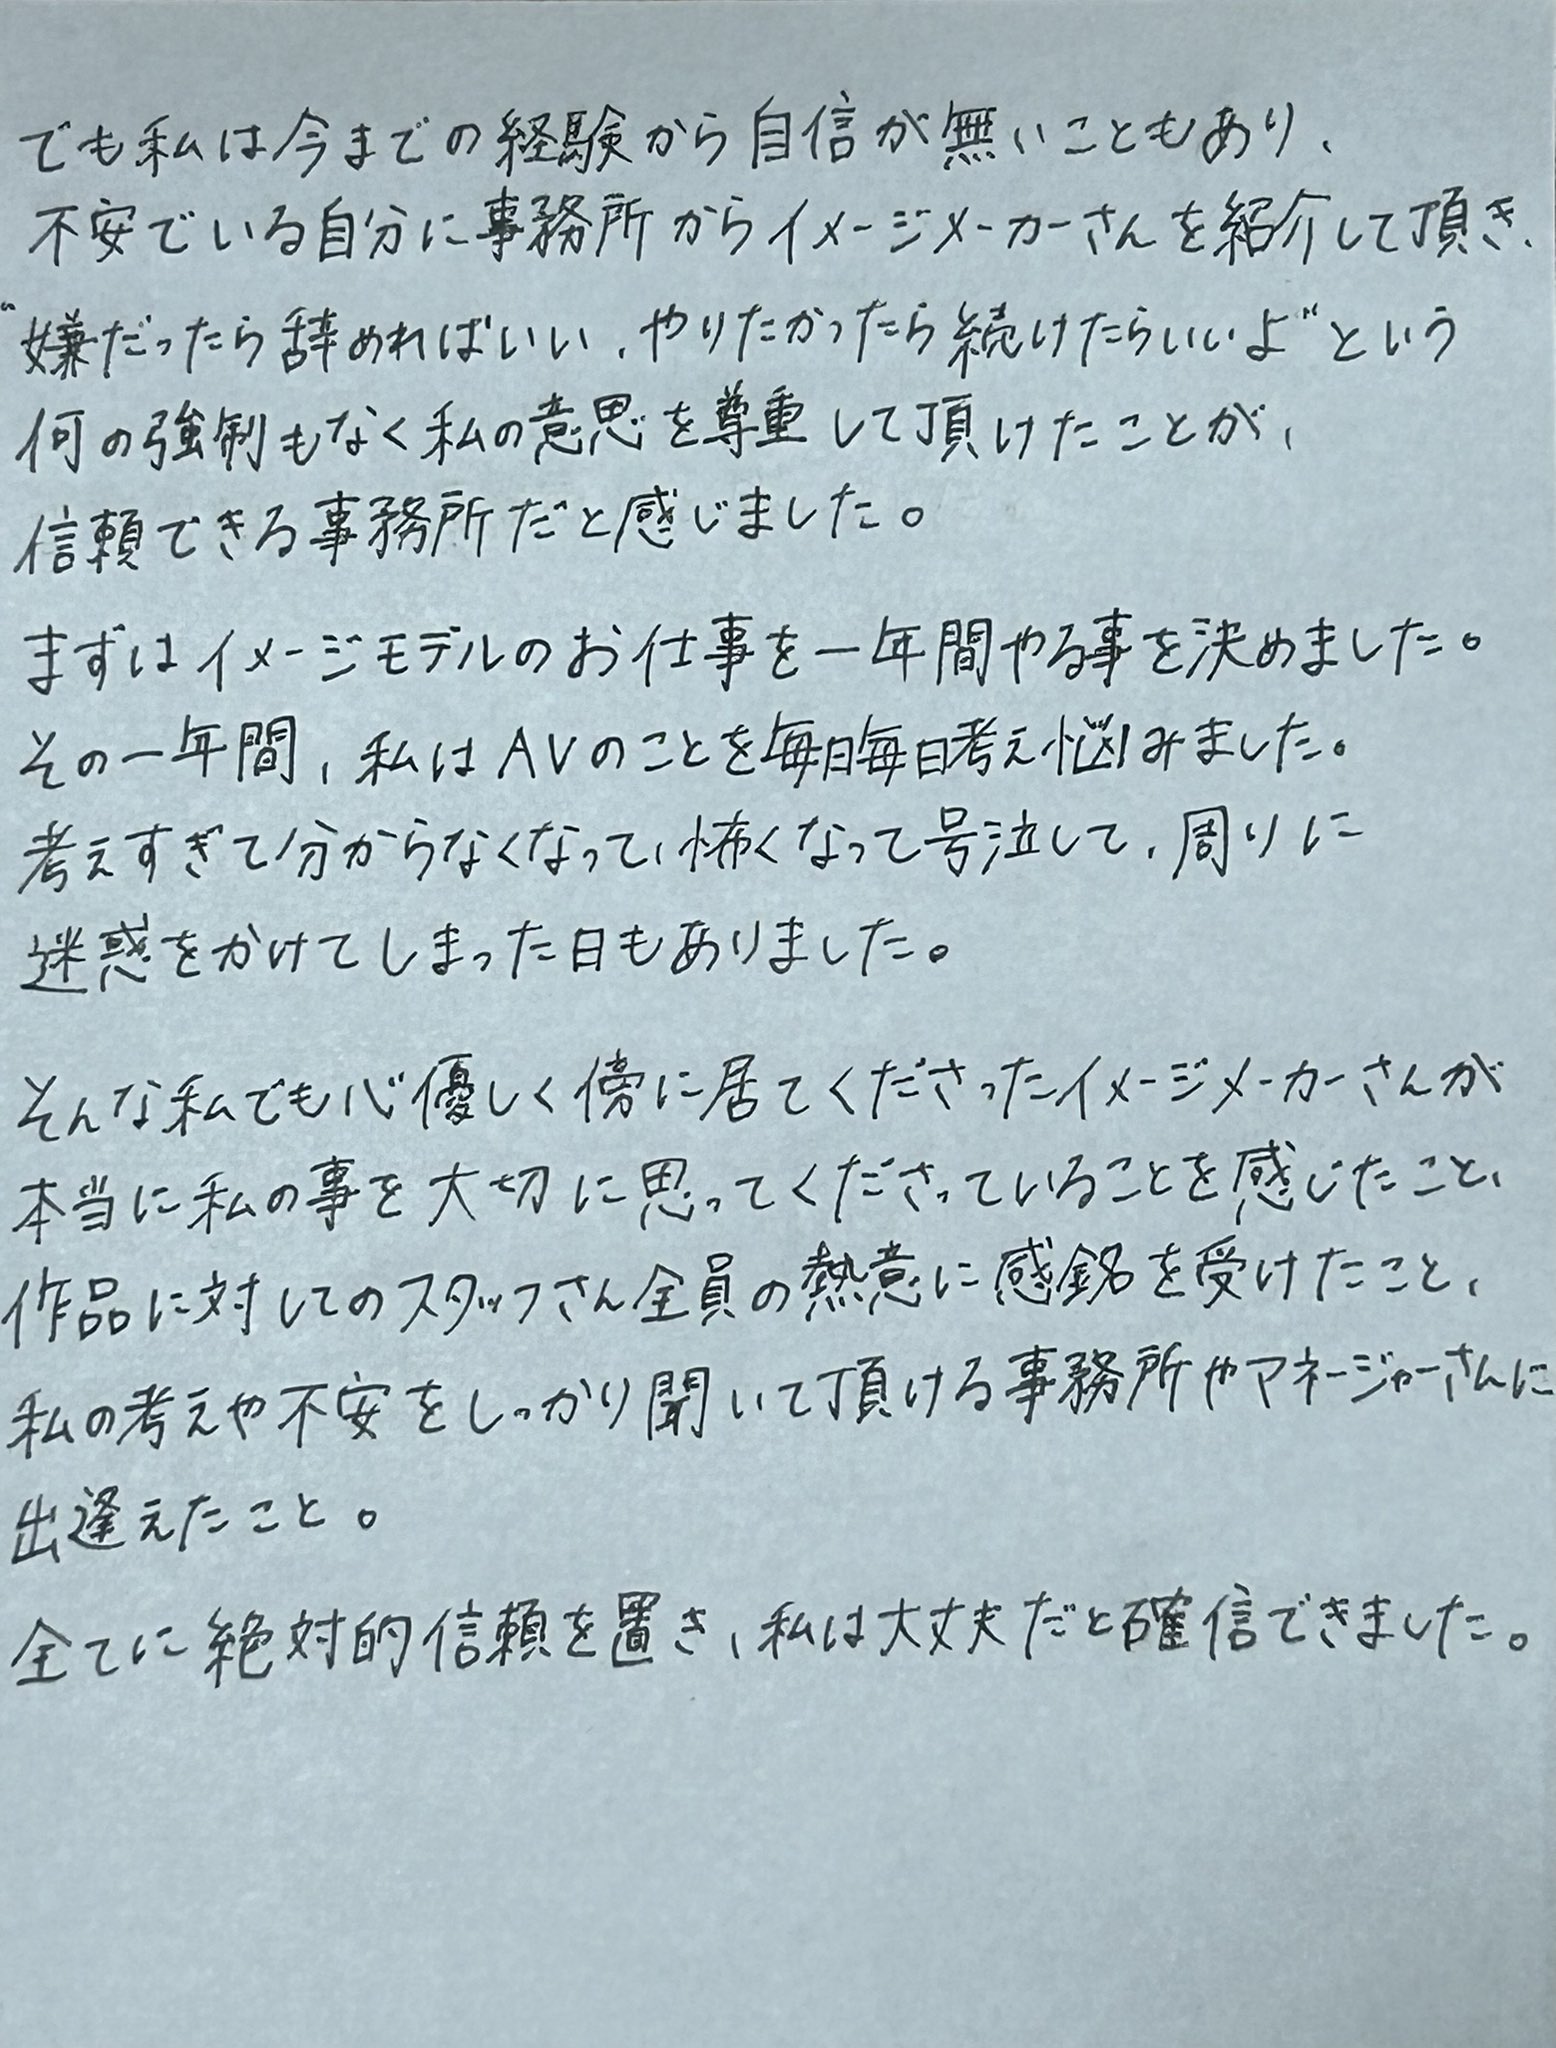 でも私は今までの経験から自信が無いこともあり、
不安でいる自分に事務所からイメージメーカーさんを紹介して頂き、
“嫌だったら辞めればいい、やりたかったら続けたらいいよ”という
何の強制もなく私の意思を尊重して頂けたことが、
信頼できる事務所だと感じました。
まずはイメージモデルのお仕事を一年間やる事を決めました。
その一年間、私はAVのことを毎日毎日考え悩みました。
考えすぎて分からなくなって、怖くなって号泣して、周りに
迷惑をかけてしまった日もありました。
そんな私でも心優しく傍に居てくださったイメージメーカーさんが
本当に私の事を大切に思ってくださっていることを感じたこと、
作品に対してのスタッフさん全員の熱意に感銘を受けたこと、
私の考えや不安をしっかり聞いて頂ける事務所やマネージャーさんに
出逢えたこと。
全てに絶対的信頼を置き、私は大丈夫だと確信できました。